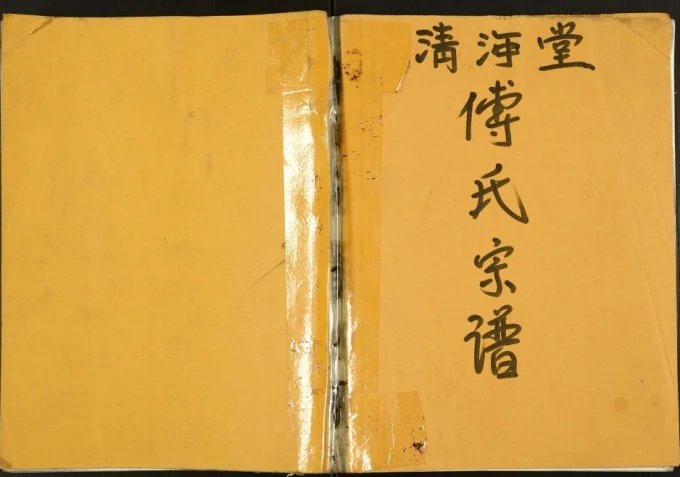 清海堂
傅氏宗谱